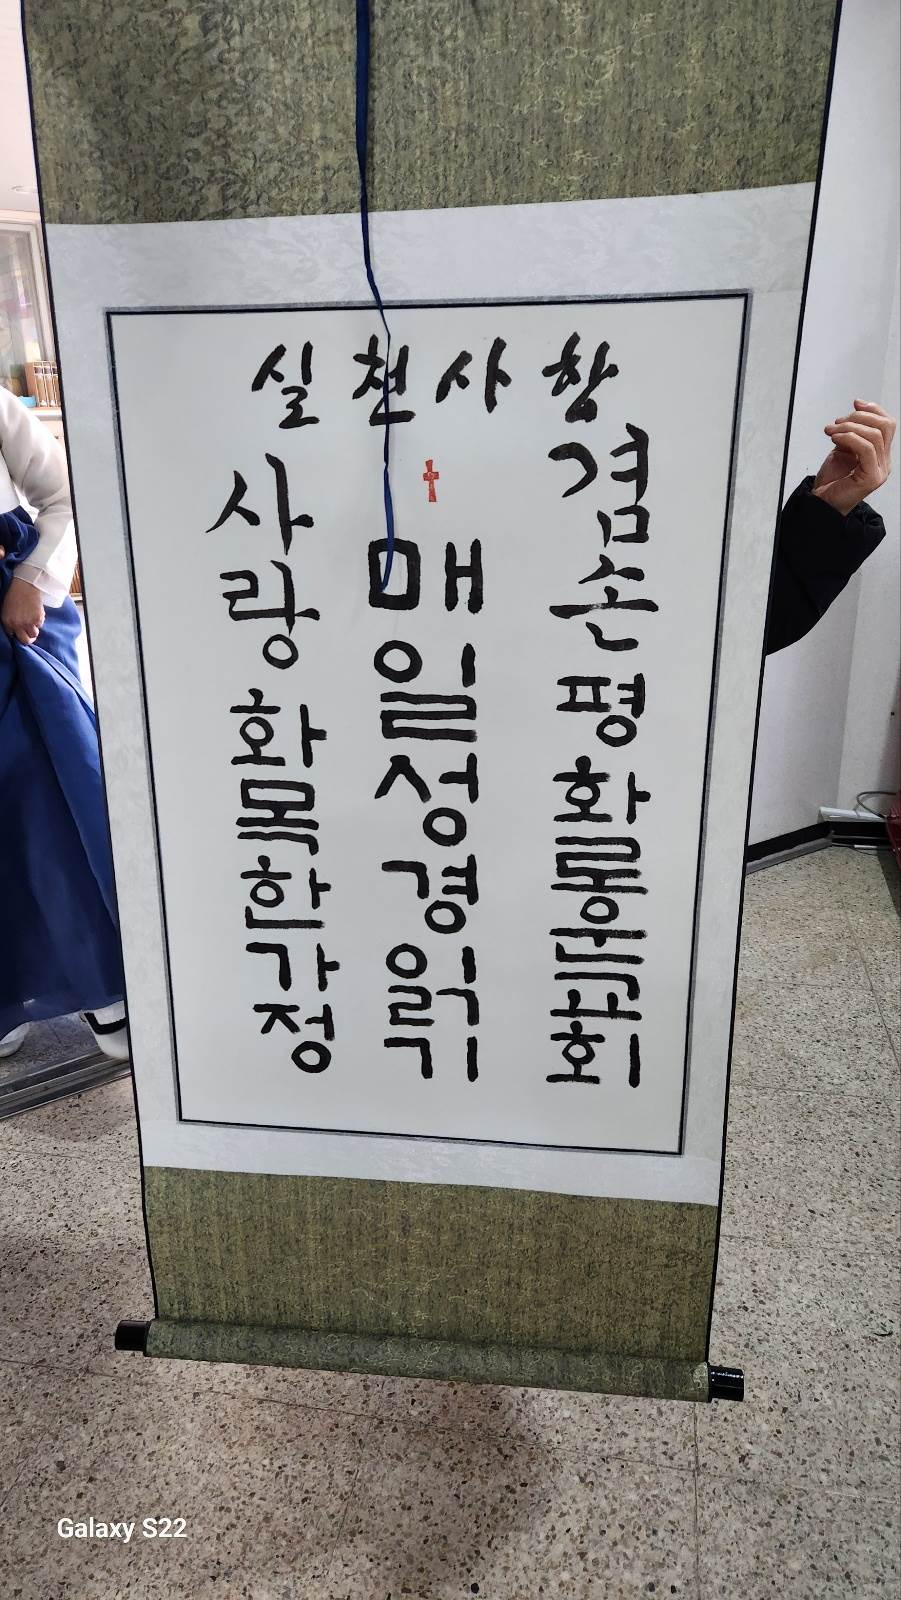 실천사항
겸손평화로운교회
매일성경읽기
사랑화목한가정
Galaxy S22